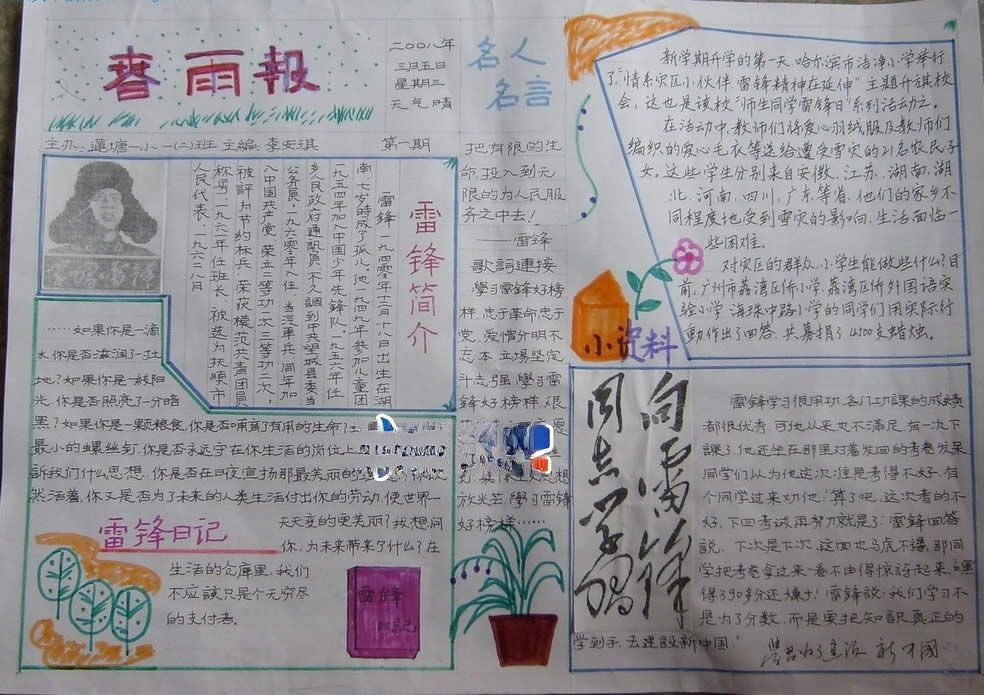 春雨報
二〇〇八年
三月五日
星期三
天气晴
主办:蓮塘一小一(二)班 主编:李安琪 第一期
名人
名言
把有限的生
命,投入到无
限的为人民服
务之中去!
——雷锋
歌詞連接
學习雷锋好榜
样,忠于革命忠于
党,爱憎分明不
忘本,立場坚定
斗志强,學习雷
锋好榜样,
放光芒,學习雷锋
好榜样……
雷锋简介
雷锋,一九四〇年十二月十八日出生在湖
南,七岁時成了孤儿。他一九四九年参加儿童团
一九五四年加入中国少年先鋒队,一九五六年任
乡人民政府通訊員,不久調到中共望城县委当
公务員,一九六〇年入伍,当汽車兵,同年加
入中国共产党,荣立二等功一次,三等功二次,
被評为节約标兵,荣获模范共青团員
称号,一九六一年任班长,被选为抚順市
人民代表,一九六二年八月
……如果你是一滴
水,你是否滋润了一寸土
地?如果你是一线阳
光,你是否照亮了一分暗
黑?如果你是一颗粮食,你是否哺育了有用的生命?
最小的螺丝钉,你是否永远守在你生活的岗位上
訴我们什么思想,你是否在日夜宣扬那最美丽的
活着,你又是否为了未来的人类生活付出你的劳动,使世界一
天天变的更美丽?我想問
你,为未来带来了什么?在
生活的仓庫里,我们
不应該只是个无穷尽
的支付者。
雷锋日记
雷锋
日記
新学期开学的第一天,哈尔滨市洁净小学举行
了“情系灾区小伙伴 雷锋精神在延伸”主题升旗校
会,这也是该校“师生同学雷锋日”系列活动之一。
在活动中,教师们将爱心羽绒服及教师们
编织的爱心毛衣等送给遭受雪灾的21名农民子
女,这些学生分别来自安徽、江苏、湖南、湖
北、河南、四川、广东等省,他们的家乡不
同程度地受到雪灾的影响,生活面临一
些困难。
对灾区的群众,小学生能做些什么?目
前,广州市荔湾区侨小学、荔湾区侨外国语实
验小学、海珠中路小学的同学们用实际行
動作出了回答,共募捐了4500支蜡烛。
小资料
向雷锋
同志学习
雷锋学习很用功,各门功課的成绩
都很优秀,可他从来也不满足,有一次下
課了,他还坐在那里对着发回的考卷发呆
同学们以为他这次准是考得不好,有
个同学过来劝他:“算了吧,这次考的不
好,下回考試再努力就是了。”雷锋回答
說:“下次是下次,这回也马虎不得。”那同
学把考卷拿过来一看,不由得惊訝起来:“
得了90多分还嫌少!”雷锋說:“我们学习不
是为了分数,而是要把知識真正的
学到手,去建設新中国。”